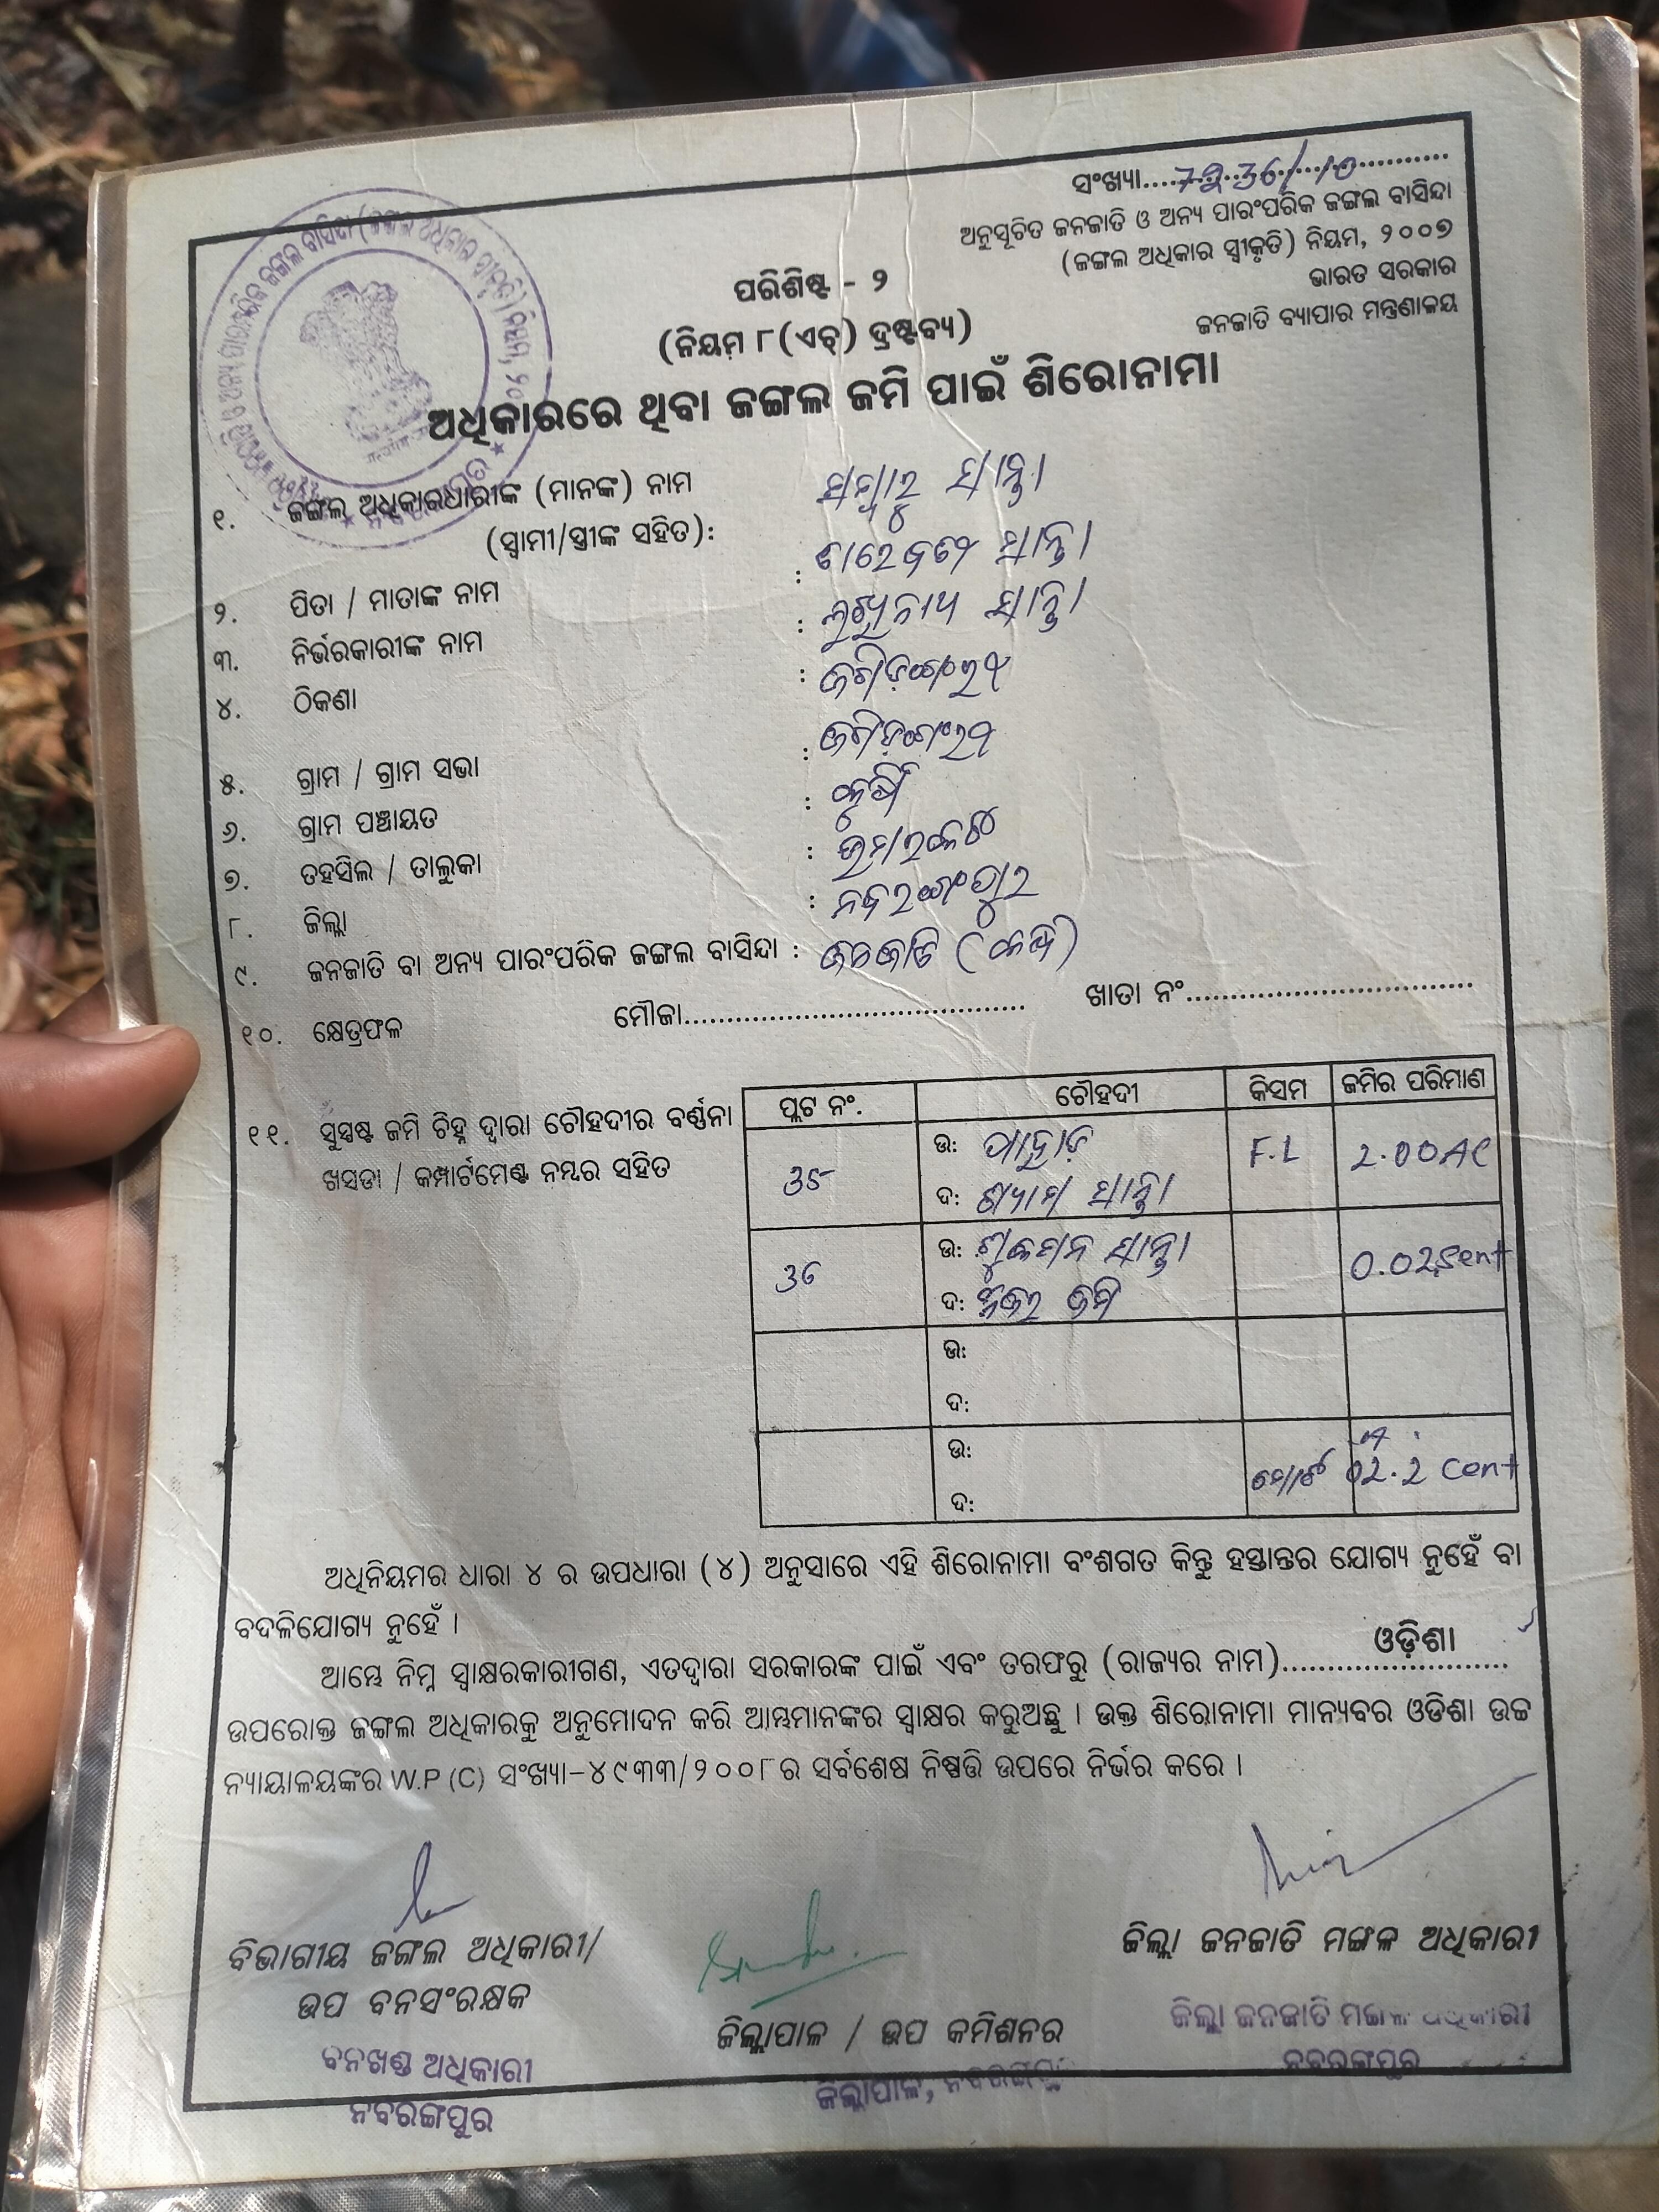 ସଂଖ୍ୟା.............................
ଅନୁସୂଚିତ ଜନଜାତି ଓ ଅନ୍ୟ ପାରଂପରିକ ଜଙ୍ଗଲ ବାସିନ୍ଦା
(ଜଙ୍ଗଲ ଅଧିକାର ସ୍ୱୀକୃତି) ନିୟମ, ୨୦୦୭
ଭାରତ ସରକାର
ଜନଜାତି ବ୍ୟାପାର ମନ୍ତ୍ରଣାଳୟ
ପରିଶିଷ୍ଟ - ୨
(ନିୟମ ୮(ଏଚ୍) ଦ୍ରଷ୍ଟବ୍ୟ)
ଅଧିକାରରେ ଥିବା ଜଙ୍ଗଲ ଜମି ପାଇଁ ଶିରୋନାମା
୧. ଜଙ୍ଗଲ ଅଧିକାରଧାରୀଙ୍କ (ମାନଙ୍କ) ନାମ
(ସ୍ୱାମୀ/ସ୍ତ୍ରୀଙ୍କ ସହିତ): ସାନ୍ତା
୨. ପିତା / ମାତାଙ୍କ ନାମ : ସାନ୍ତା
୩. ନିର୍ଭରକାରୀଙ୍କ ନାମ : ସାନ୍ତା
୪. ଠିକଣା :
୫. ଗ୍ରାମ / ଗ୍ରାମ ସଭା :
୬. ଗ୍ରାମ ପଞ୍ଚାୟତ :
୭. ତହସିଲ / ତାଲୁକା : ଉମରକୋଟ
୮. ଜିଲ୍ଲା : ନବରଙ୍ଗପୁର
୯. ଜନଜାତି ବା ଅନ୍ୟ ପାରଂପରିକ ଜଙ୍ଗଲ ବାସିନ୍ଦା : ଜନଜାତି
୧୦. କ୍ଷେତ୍ରଫଳ ମୌଜା....................................... ଖାତା ନଂ.................................
୧୧. ସୁସ୍ପଷ୍ଟ ଜମି ଚିହ୍ନ ଦ୍ୱାରା ଚୌହଦୀର ବର୍ଣ୍ଣନା
ଖସଡା / କମ୍ପାର୍ଟମେଣ୍ଟ ନମ୍ବର ସହିତ
ପ୍ଲଟ ନଂ. ଚୌହଦୀ କିସମ ଜମିର ପରିମାଣ
35 ଉ: ପାହାଡ଼ F.L 2.00Ac
ଦ: ଶ୍ୟାମ ସାନ୍ତା
36 ଉ: ସାନ୍ତା 0.02 cent
ଦ: ନିଜର ଜମି
ଉ:
ଦ:
ଉ:
ଦ: ମୋଟ 02.2 cent
ଅଧିନିୟମର ଧାରା ୪ ର ଉପଧାରା (୪) ଅନୁସାରେ ଏହି ଶିରୋନାମା ବଂଶଗତ କିନ୍ତୁ ହସ୍ତାନ୍ତର ଯୋଗ୍ୟ ନୁହେଁ ବା
ବଦଳିଯୋଗ୍ୟ ନୁହେଁ ।
ଆମ୍ଭେ ନିମ୍ନ ସ୍ୱାକ୍ଷରକାରୀଗଣ, ଏତଦ୍ୱାରା ସରକାରଙ୍କ ପାଇଁ ଏବଂ ତରଫରୁ (ରାଜ୍ୟର ନାମ)......ଓଡ଼ିଶା......
ଉପରୋକ୍ତ ଜଙ୍ଗଲ ଅଧିକାରକୁ ଅନୁମୋଦନ କରି ଆମ୍ଭମାନଙ୍କର ସ୍ୱାକ୍ଷର କରୁଅଛୁ । ଉକ୍ତ ଶିରୋନାମା ମାନ୍ୟବର ଓଡିଶା ଉଚ୍ଚ
ନ୍ୟାୟାଳୟଙ୍କର W.P (C) ସଂଖ୍ୟା-୪୯୩୩/୨୦୦୮ର ସର୍ବଶେଷ ନିଷ୍ପତ୍ତି ଉପରେ ନିର୍ଭର କରେ ।
ବିଭାଗୀୟ ଜଙ୍ଗଲ ଅଧିକାରୀ/
ଉପ ବନସଂରକ୍ଷକ
ବନଖଣ୍ଡ ଅଧିକାରୀ
ନବରଙ୍ଗପୁର
ଜିଲ୍ଲାପାଳ / ଉପ କମିଶନର
ଜିଲ୍ଲାପାଳ, ନବରଙ୍ଗପୁର
ଜିଲ୍ଲା ଜନଜାତି ମଙ୍ଗଳ ଅଧିକାରୀ
ଜିଲ୍ଲା ଜନଜାତି ମଙ୍ଗଳ ଅଧିକାରୀ
ନବରଙ୍ଗପୁର